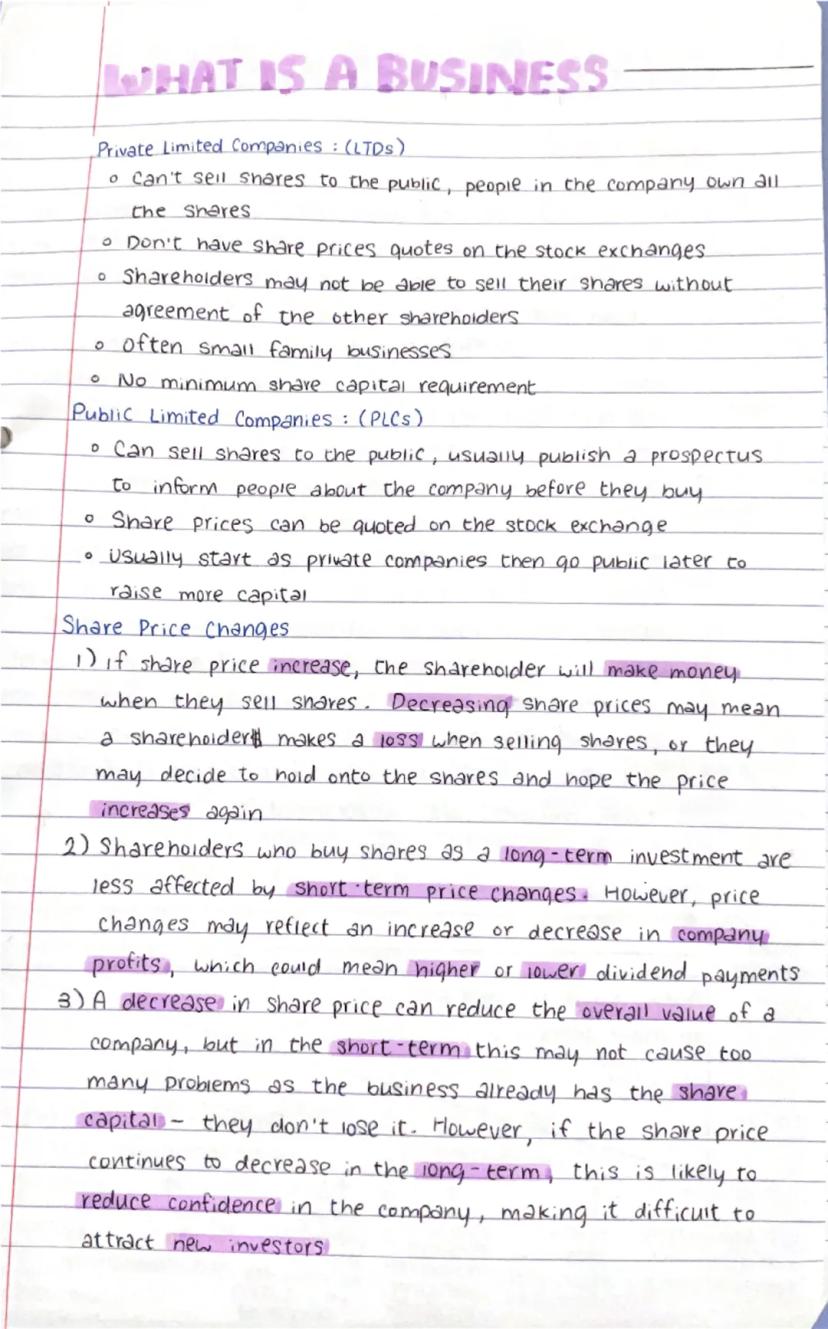 WHAT IS A BUSINESS
Private Limited Companies : (LTDs)
◦ Can't sell shares to the public, people in the company own all
the shares
◦ Don't have share prices quotes on the stock exchanges
◦ Shareholders may not be able to sell their shares without
agreement of the other shareholders
◦ Often small family businesses
◦ No minimum share capital requirement
Public Limited Companies : (PLCs)
◦ Can sell shares to the public, usually publish a prospectus
to inform people about the company before they buy
◦ Share prices can be quoted on the stock exchange
◦ Usually start as private companies then go public later to
raise more capital
Share Price Changes
1) If share price increase, the shareholder will make money
when they sell shares. Decreasing share prices may mean
a shareholder makes a loss when selling shares, or they
may decide to hold onto the shares and hope the price
increases again
2) Shareholders who buy shares as a long-term investment are
less affected by short-term price changes. However, price
changes may reflect an increase or decrease in company
profits, which could mean higher or lower dividend payments
3) A decrease in share price can reduce the overall value of a
company, but in the short-term this may not cause too
many problems as the business already has the share
capital - they don't lose it. However, if the share price
continues to decrease in the long-term, this is likely to
reduce confidence in the company, making it difficult to
attract new investors